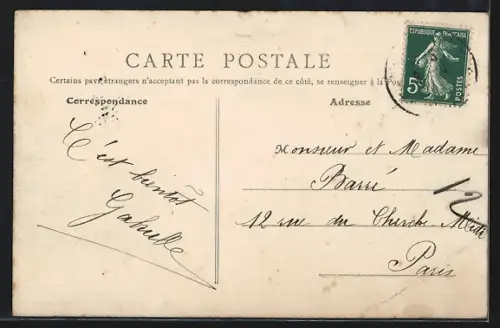 REPUBLIQUE FRANÇAISE
5c
POSTES
CARTE POSTALE
Certains pays étrangers n'acceptant pas la correspondance de ce côté, se renseigner à la Pos
Correspondance
Adresse
C'est bientôt
Gabrielle
Monsieur et Madame
Barré
12
12 rue du Cherche Midi
Paris